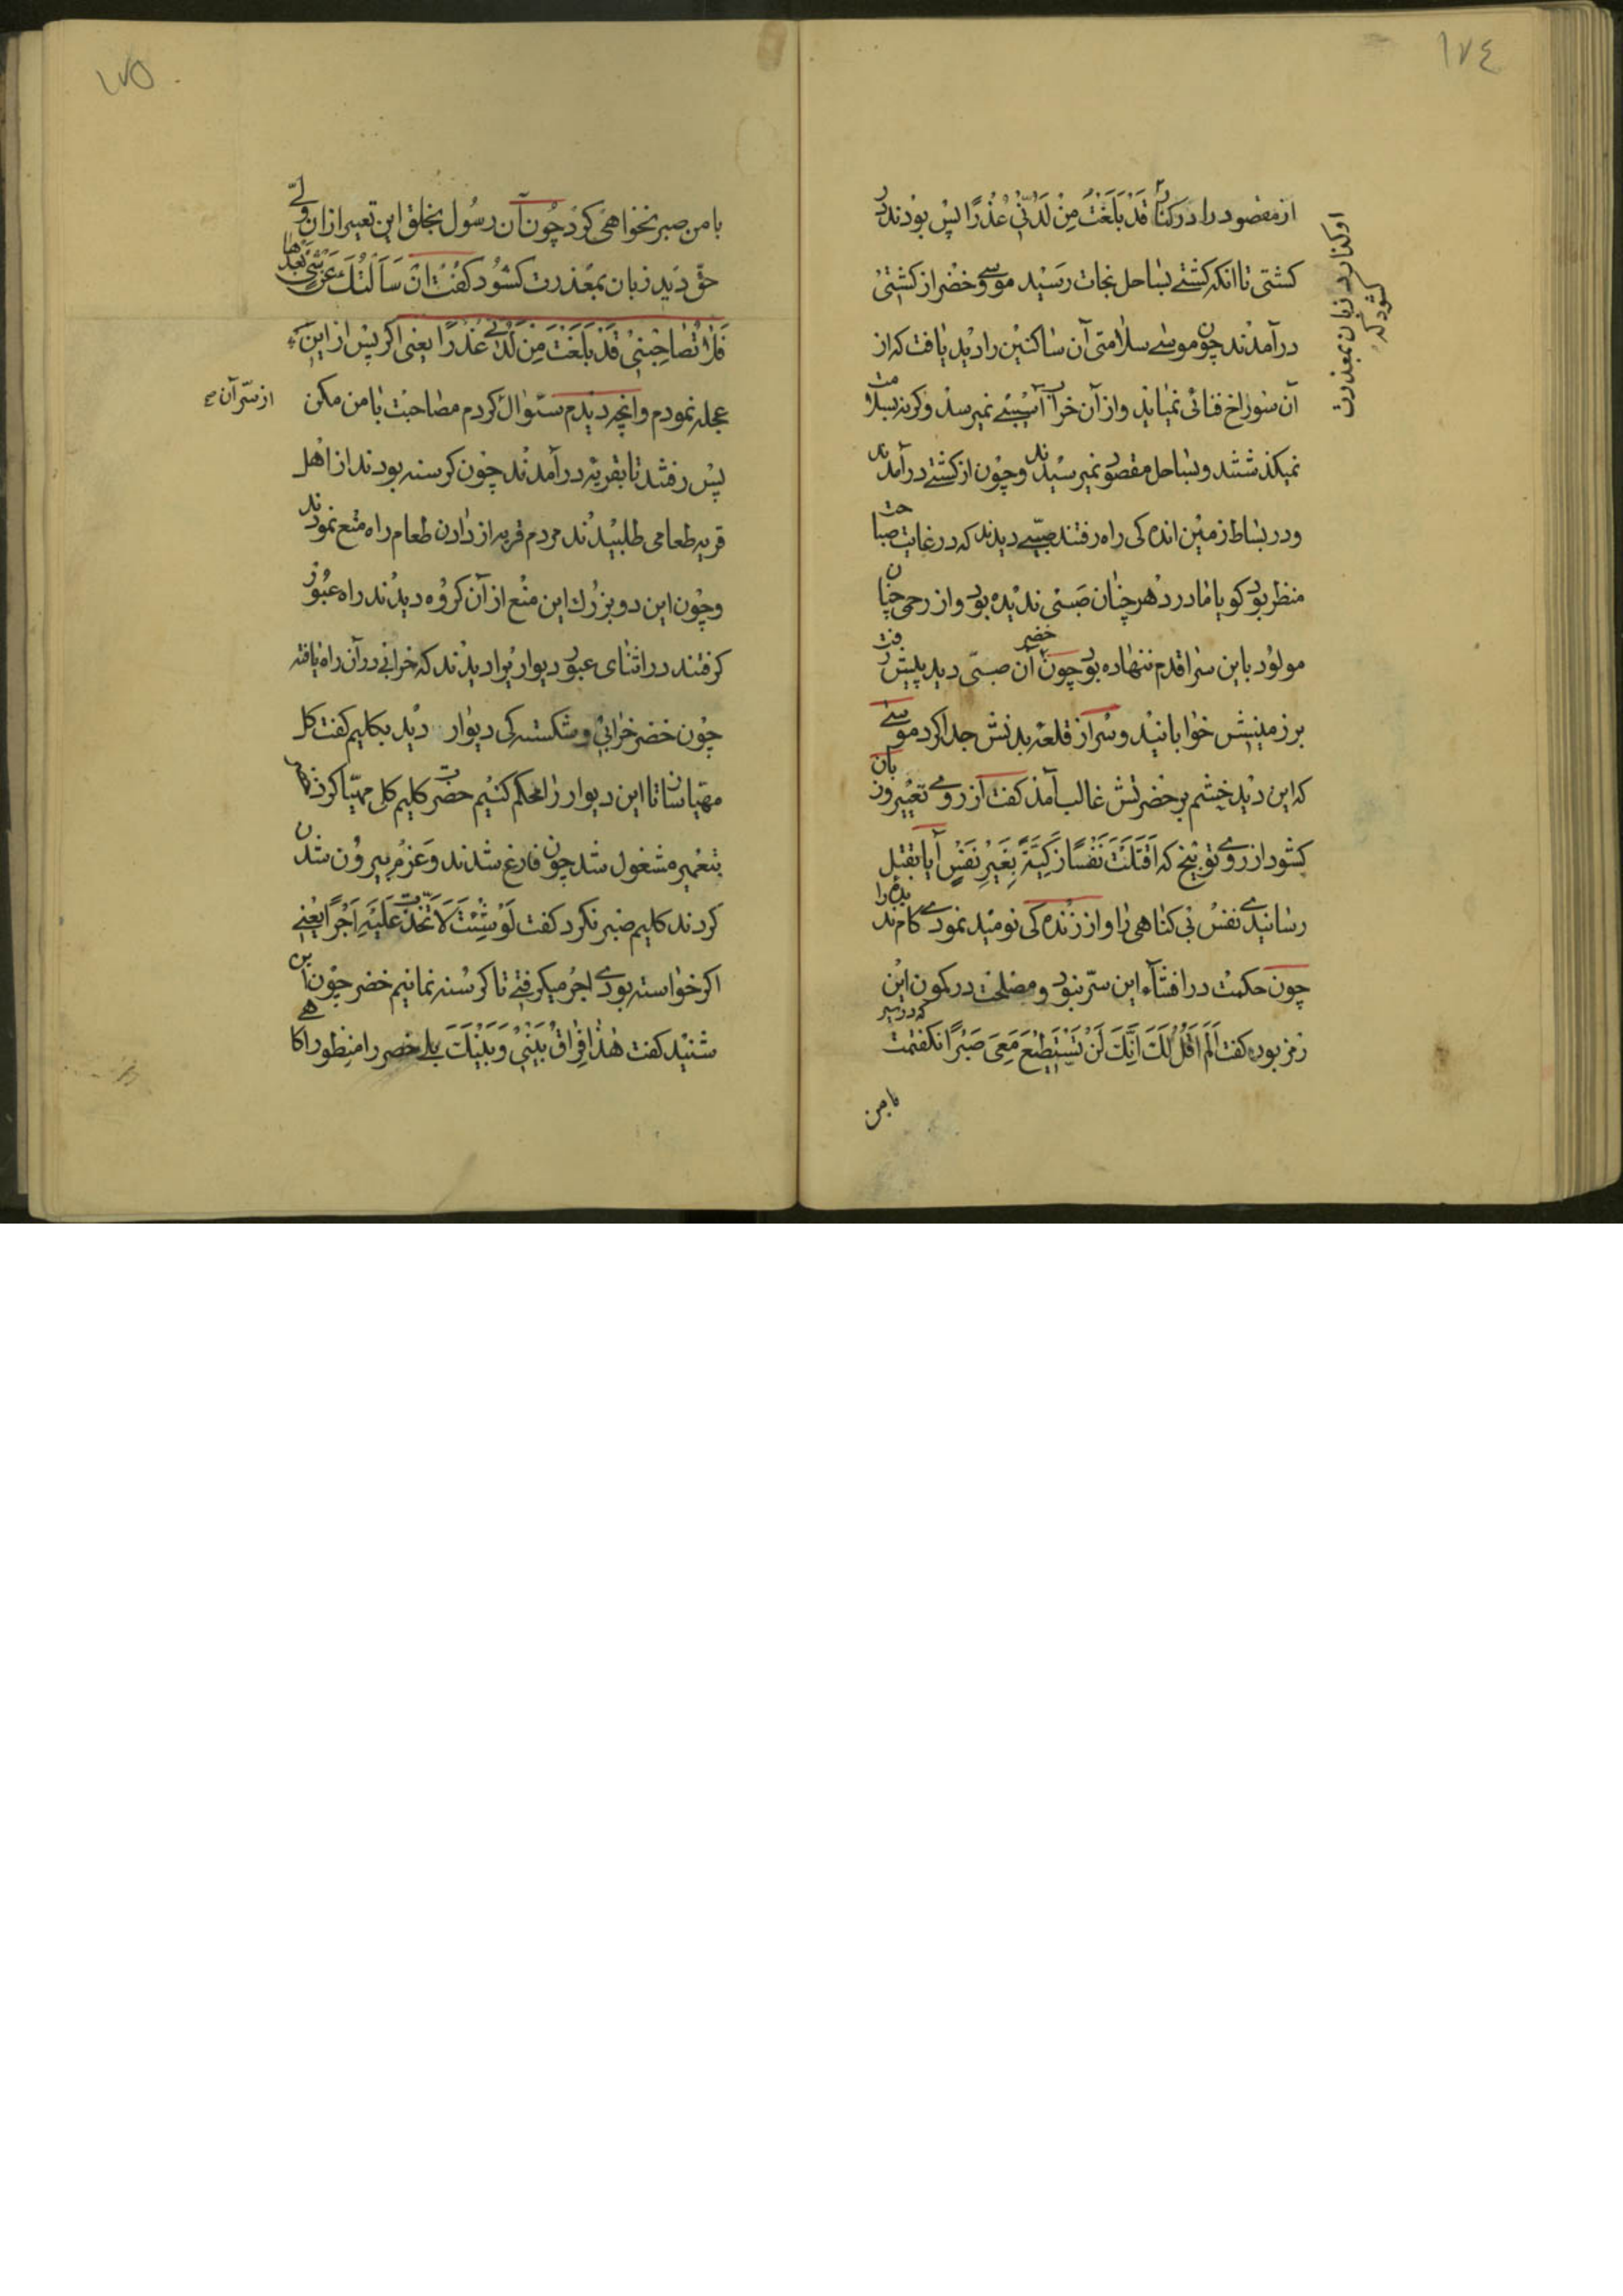 ١٧٤
از مقصود را در کنار قَدْ بَلَغْتَ مِنْ لَدُنِّی عُذْرًا پس بودند در
او کنار زبان بمعذرت
کشود که
کشتی تا انکه کشتی بساحل نجات رسید موسی و خضر از کشتی
درآمدند چون موسی سلامتی آن ساکنین را دید یافت که از
آن سوراخ فنائی نمیاید و از آن خراب آسیبی نمیرسد و کرنه بسلامت
نمیکذشتند و بساحل مقصود نمیرسیدند و چون از کشتی درآمدند
و در بساط زمین اندکی راه رفتند صبیی دیدند که در غایت صباحت
منظر بود کویا مادر دهر چنان صبی ندیده بود و از رحمی چنان
مولود باین سرا قدم ننهاده بود چون خضر آن صبی دید پیش رفت
بر زمینش خوابانید و سر از قلعه بدنش جدا کرد موسی
که این دید خشم بر حضرتش غالب آمد کفت از روی تعییر و زبان
کشود از روی توبیخ که اَقَتَلْتَ نَفْسًا زَکِیَّةً بِغَیْرِ نَفْسٍ آیا بقتل
رسانیدی نفس بی کناهی را و از زنده کی نومید نمودی کام ندیده را
چون حکمت در افشآء این سرّ نبود و مصلحت در کمون این
رمز بود کفت اَلَمْ اَقُلْ لَکَ اِنَّکَ لَنْ تَسْتَطِیْعَ مَعِیَ صَبْرًا نکفتمت که در سیر
با من
١٧٥
با من صبر نخواهی کرد چون آن رسول بخلق این تعییر از ان ولی
حق دید زبان بمعذرت کشود کفت اِنْ سَاَلْتُکَ عَنْ شَیْءٍ بَعْدَها
فَلا تُصاحِبْنِی قَدْ بَلَغْتَ مِنْ لَدُنّی عُذْرًا یعنی اکر پس از این
عجله نمودم و انچه دیدم سئوال کردم مصاحبت با من مکن
از سرّ آن صح
پس رفتند تا بقریه درآمدند چون کرسنه بودند از اهل
قریه طعامی طلبیدند مردم قریه از دادن طعام راه منع نمودند
و چون این دو بزرک این منع از آن کروه دیدند راه عبور
کرفتند در اثنای عبور دیواریرا دیدند که خرابی در آن راه یافته
چون خضر خرابی و شکسته کی دیوار دید بکلیم کفت کل
مهیا سان تا این دیوار را محکم کنیم حضرت کلیم کل مهیا کرد
بتعمیر مشغول شد چون فارغ شدند و عزم بیرون شدن
کردند کلیم صبر نکرد کفت لَوْ شِئْتَ لَاتَّخَذْتَ عَلَیْهِ اَجْرًا یعنی
اکر خواسته بودی اجر میکرفتی تا کرسنه نمانیم خضر چون این
شنید کفت هٰذا فِراقُ بَیْنِی وَ بَیْنِکَ بلی خضر را منظور اکاهی